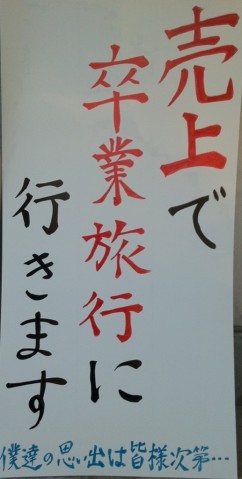 売上で
卒業旅行に
行きます
僕達の思い出は皆様次第…